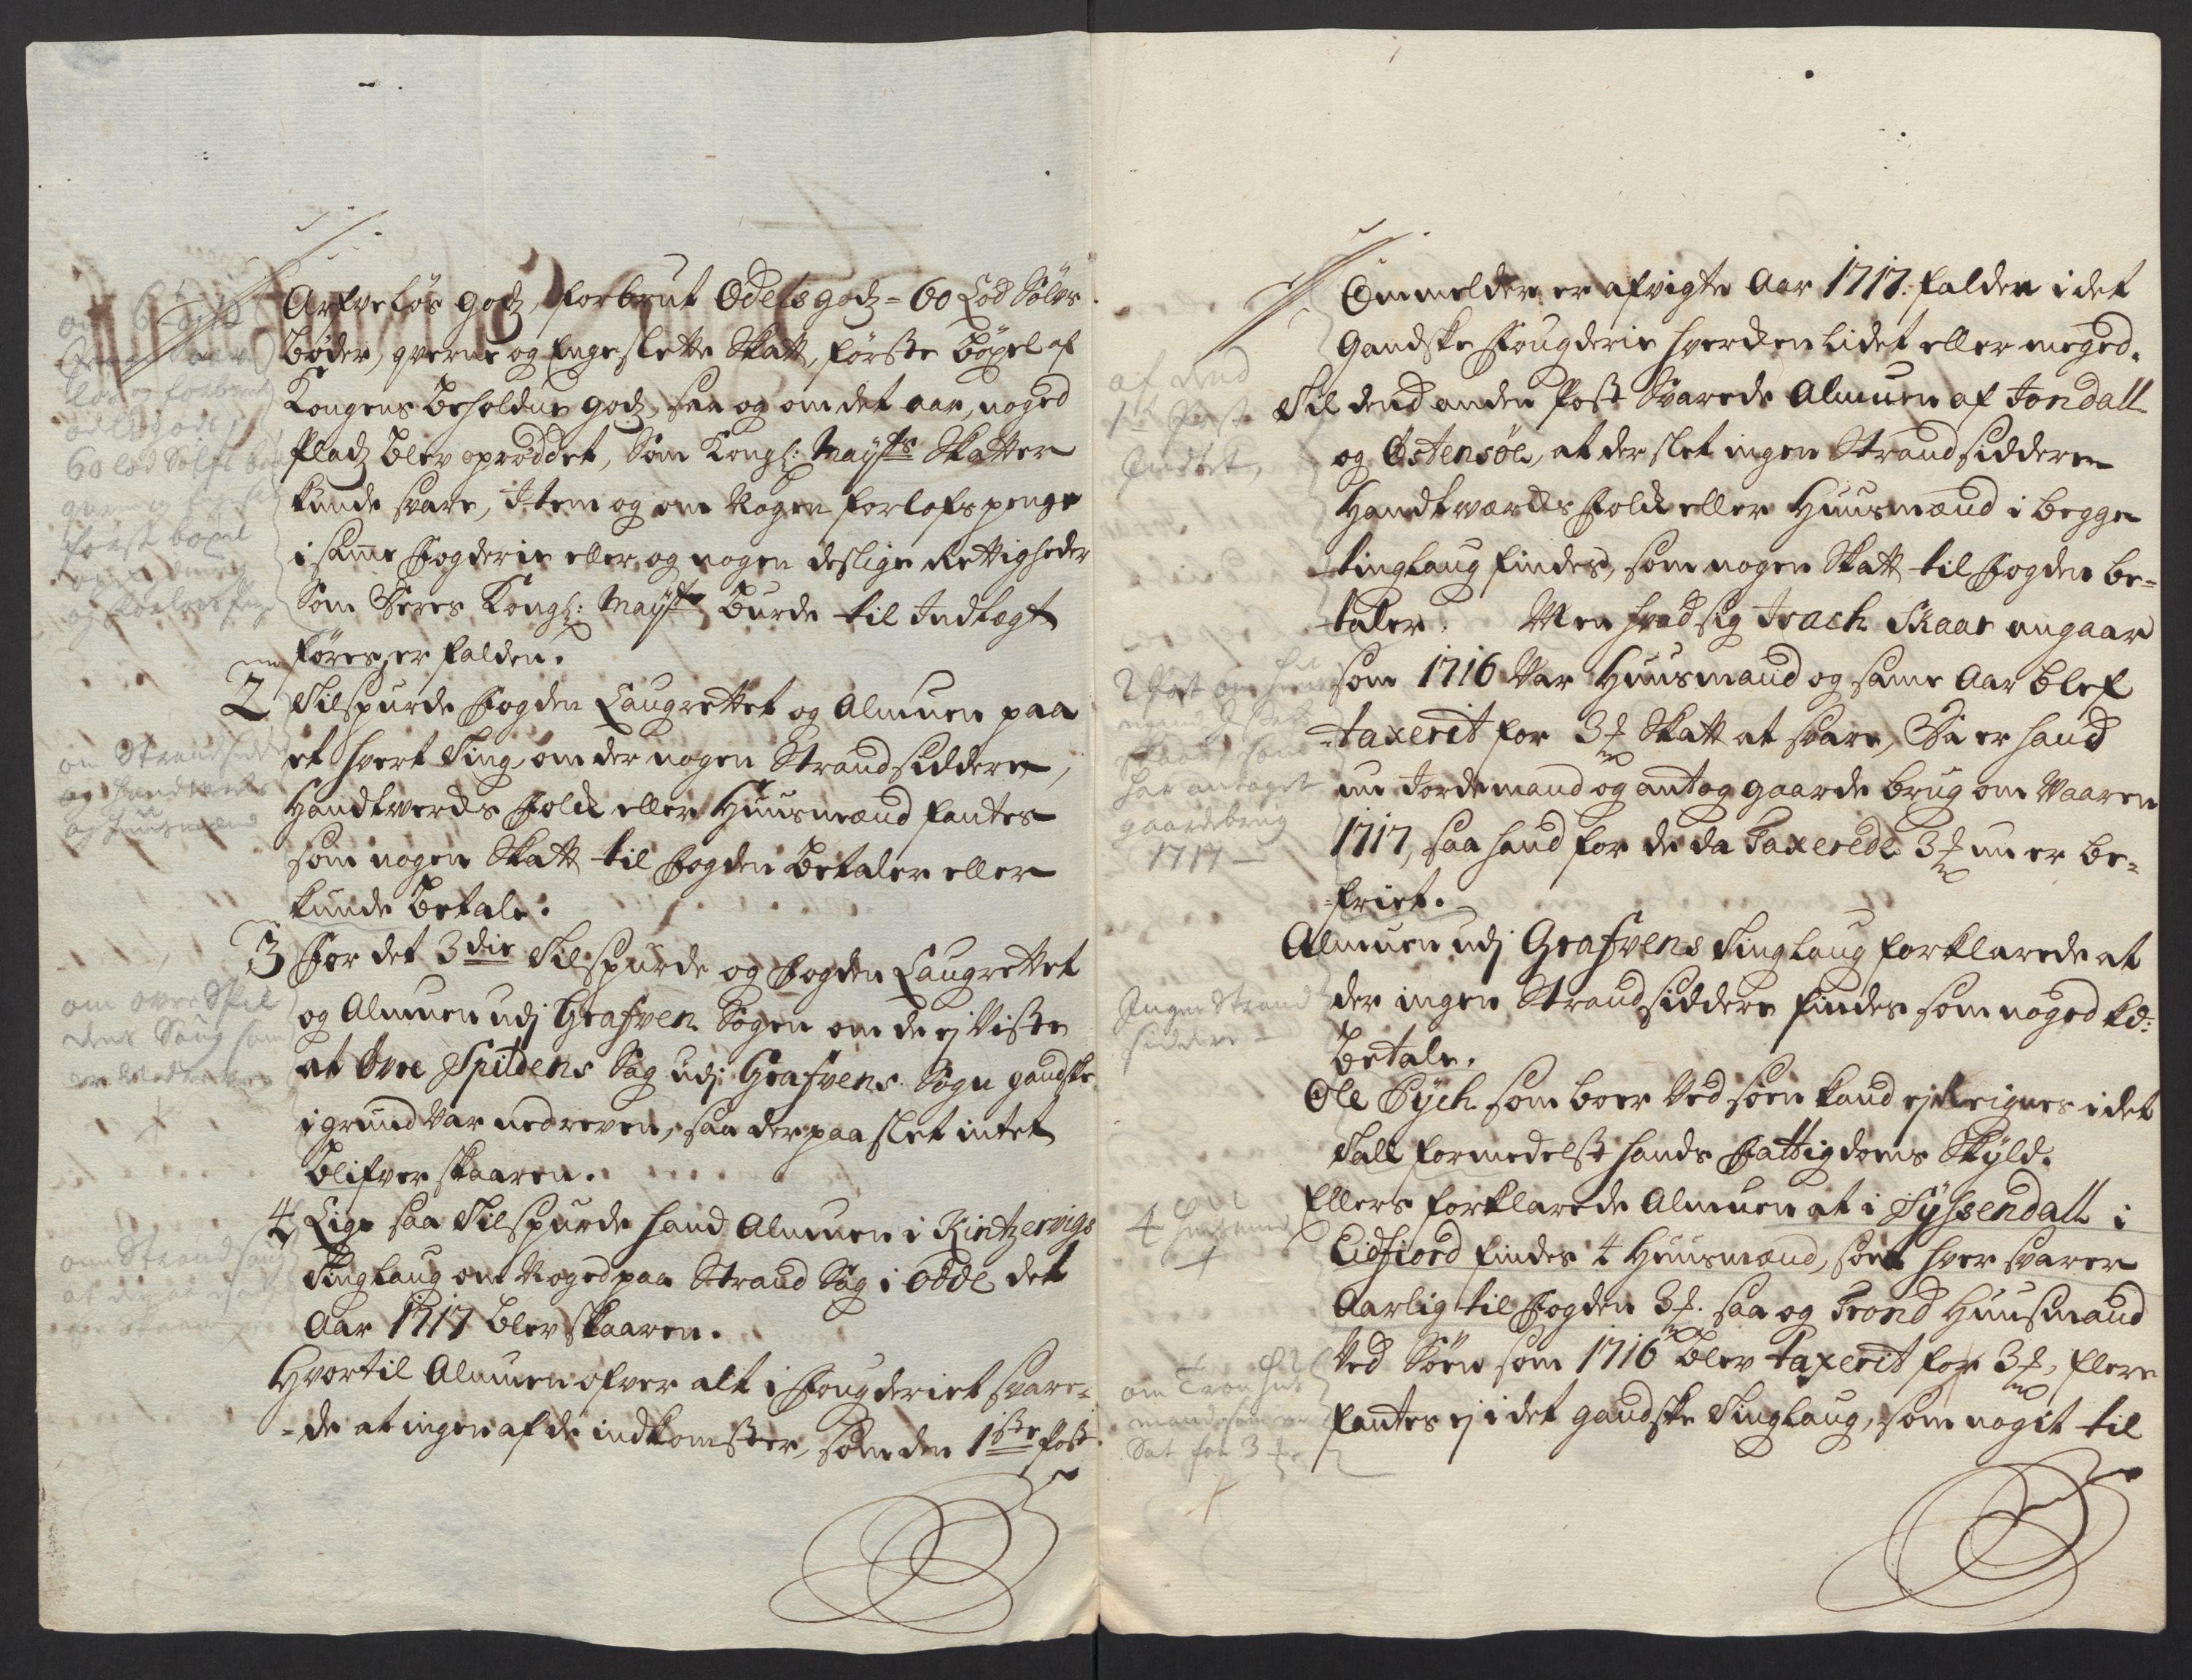 Arfveløs godz, forbrut Odelsgodz = 60 Lod Sølvs
bøder, qverne og Engeslette Skatt, førsste böxel af
Kongens beholdne godz, saa og om det aar, noged
Pladz blev oprøddet, Som Kongl: Mayſts Skatter
kunde svare, Item og om Nogen forlofs penge
i samme Fogderie eller og nogen deslige Rettigheder
Som Deres Kongl: Mayſt burde til Indtægt
føres, er falden.
2 Tilspurde Fogden Laugrettet og Almuen paa
et hvert Ting, om der nogen Strandsiddere,
Handtverks Folck eller Huusmænd fantes
som nogen Skatt til Fogden betaler eller
kunde betale.
3 For det 3die Tilspurde og Fogden Laugrettet
og Almuen udj Grafven Sogen om de ej Viste
at Øvre Spildens Sag udj Grafvens Sogn gandske
i grund var nedreven, saa der paa slet intet
blifver skaaren.
4 Lige saa Tilspurde hand Almuen i Kintzervigs
Tinglaug om Noged paa Strand Sag i Odde det
Aar 1717 blev skaaren.
Hvortil Almuen ofver alt i Fougderiet svare-
-de at ingen af de indkomster, som den 1iste Post
Ommelder, er afvigte Aar 1717: falden i det
Gandske Fougderie hverken lidet eller meged.
Til dend anden Post Svarede Almuen af Jondall
og Østensøe, at der slet ingen Strandsiddere
Handtværks Folck eller Huusmænd i begge
tinglaug findes, som nogen Skatt til Fogden be-
taler. Men hvad sig Isach Skaar angaar
som 1716 Var Huusmand og same Aar blef
taxerit for 3 Skatt at svare, Da er hand
nu Jordemand og antog gaarde brug om Vaaren
1717, saa hand for de da Taxerede 3 nu er be-
friet.
Almuen udj Grafvens Tinglaug forklarede at
der ingen Strandsiddere findes som noged kd:
betale.
Ole Pych som boer Ved søen kand ej Reignes i det
Tall formedelst hands Fattigdoms Skyld.
Ellers forklarede Almuen at i Syssendall i
Eidfiord findes 4 Huusmænd, som hver svarer
Aarlig til Fogden 3. saa og Trond Huusmand
Ved Søen som 1716 blev taxerit for 3, flere
fantes ej i det gandske Tinglaug, som nogit til
60 lod Sølfs
første böxel
om Strandsidd
og Handverks
og Huusmænd
om øvre Spil
dens Saug som
er nedreven
om Strandsaug
af dend
1te Post
Intet,
har antaget
gaardebrug
1717 —
Ingen Strand
siddere —
4 Huusmænd
om Tron Huus
mand som er
Sat for 3